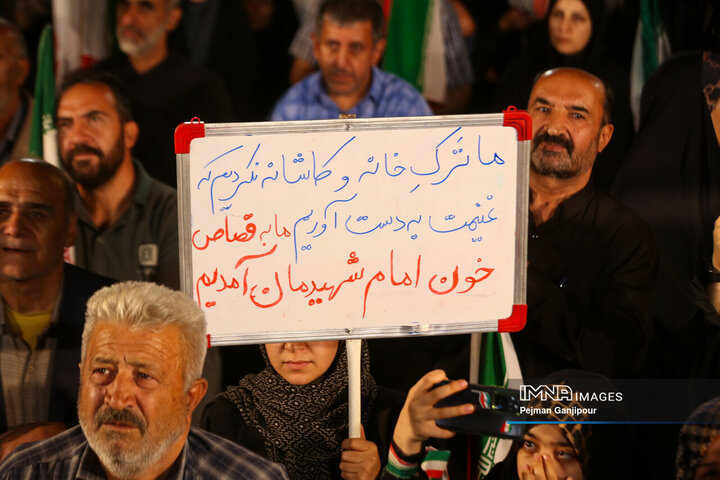 ما تَرکِ خانه و کاشانه نکردیم که
غنیمت به دست آوریم ما به قصاص
خون امام شهیدمان آمدیم
INNA IMAGES
Pejman Ganjipour